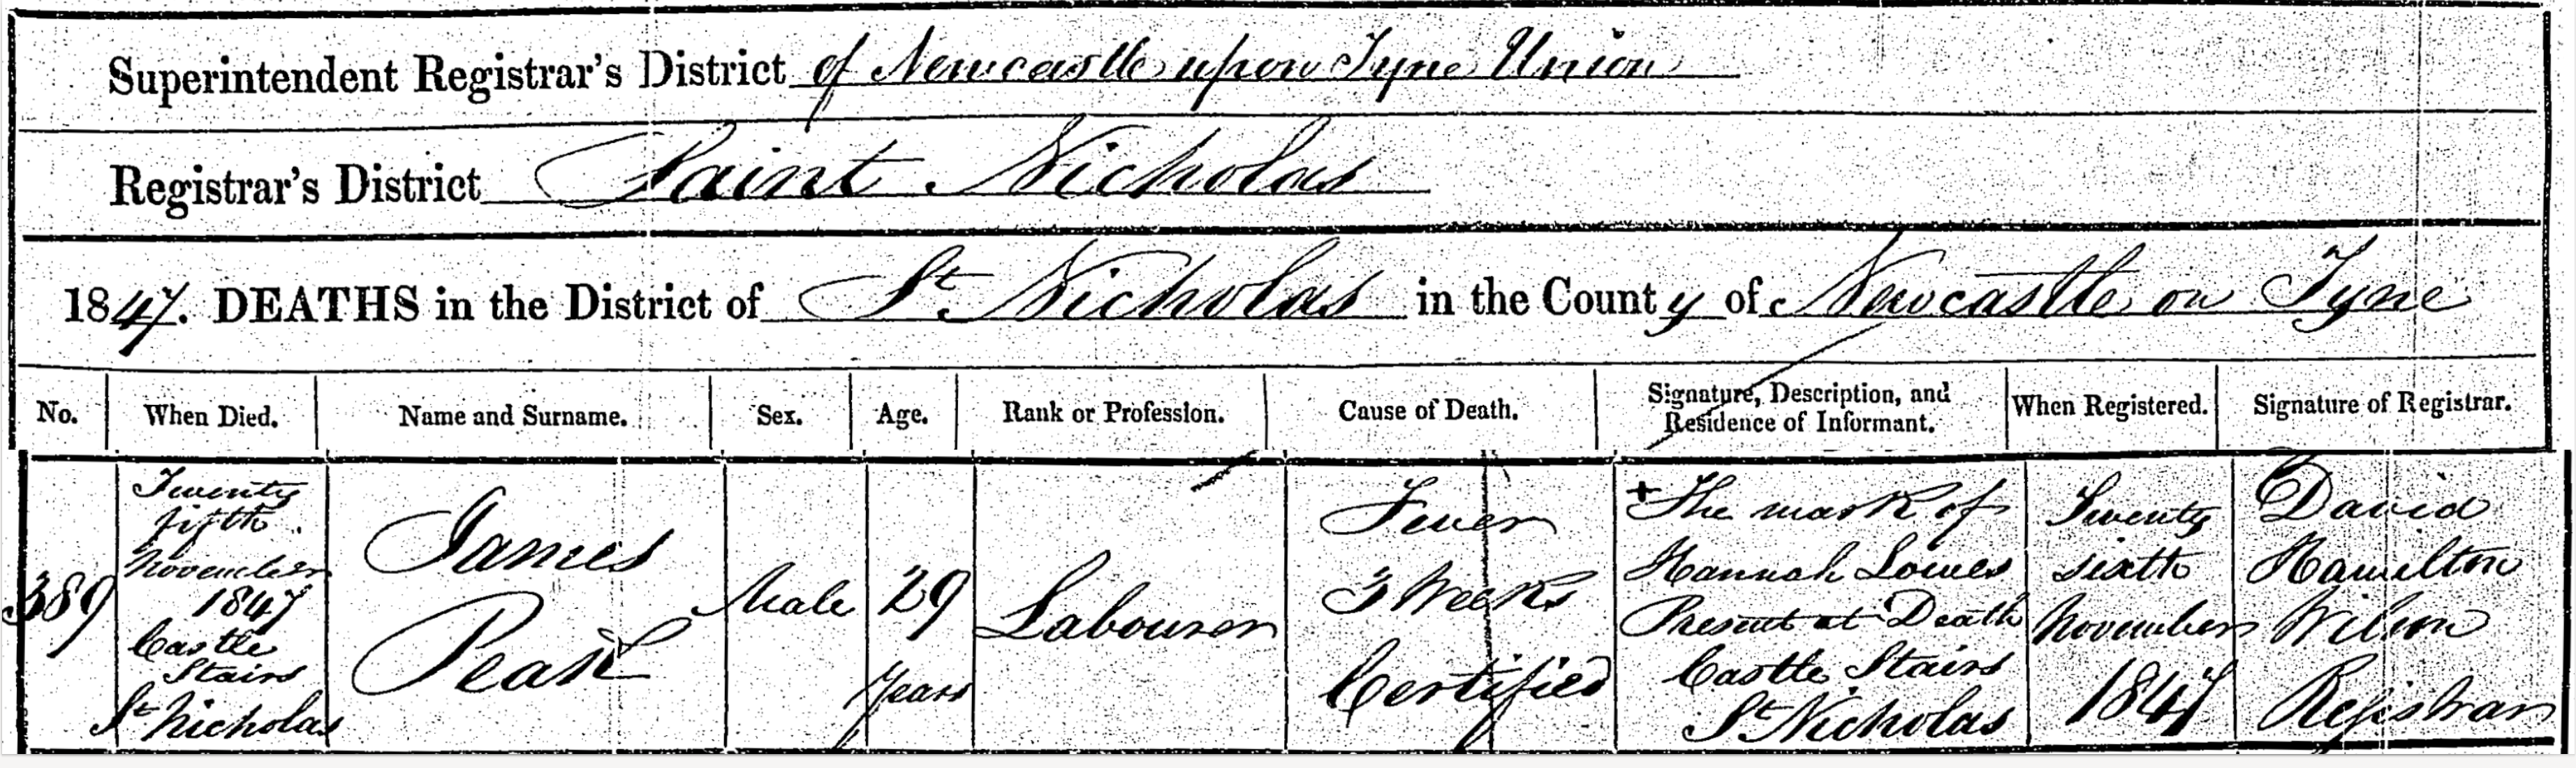 Superintendent Registrar's District of Newcastle upon Tyne Union
Registrar's District Saint Nicholas
1847. DEATHS in the District of St. Nicholas in the County of Newcastle on Tyne
No. When Died. Name and Surname. Sex. Age. Rank or Profession. Cause of Death. Signature, Description, and Residence of Informant. When Registered. Signature of Registrar.
389
Twenty
fifth
November
1847
Castle
Stairs
St Nicholas
James
Peak
Male
29
years
Labourer
Fever
3 Weeks
Certified
+ The mark of
Hannah Lowes
Present at Death
Castle Stairs
St Nicholas
Twenty
sixth
November
1847
David
Hamilton
Wilson
Registrar